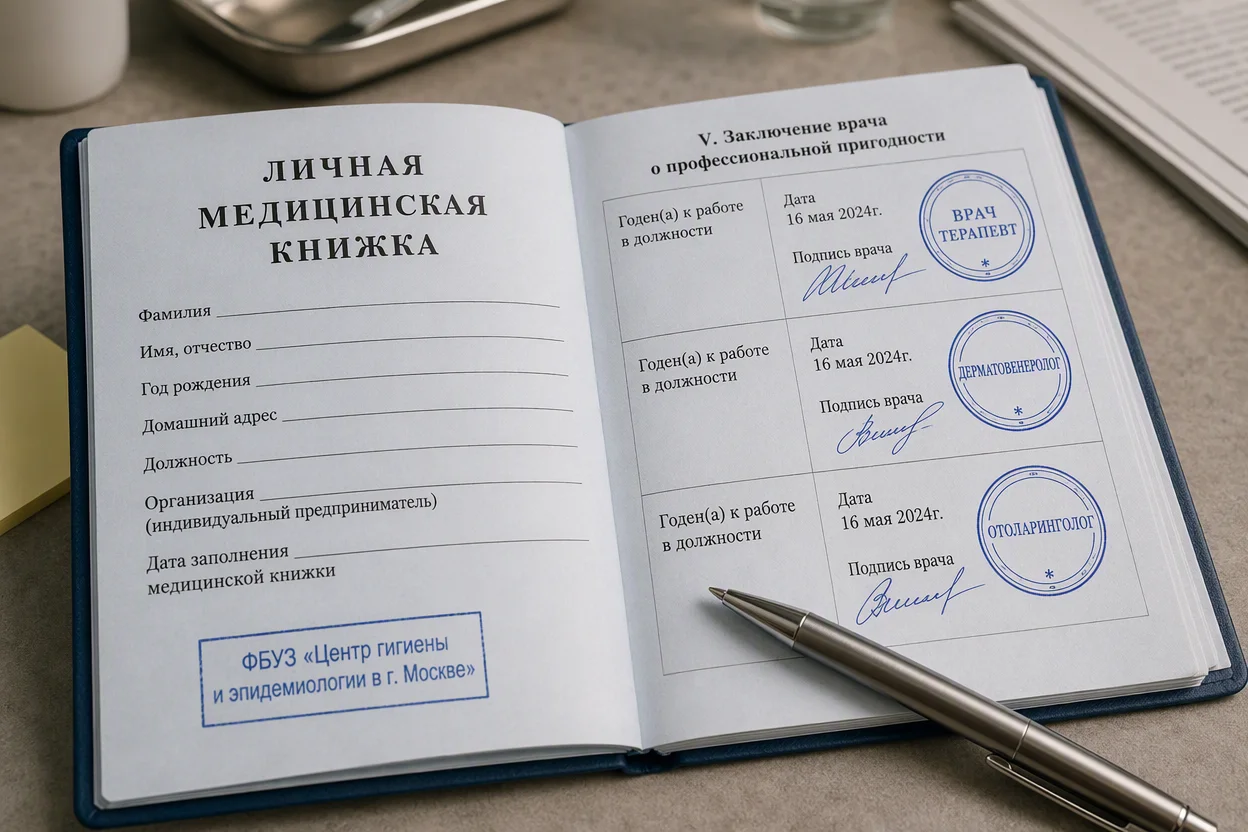 ЛИЧНАЯ
МЕДИЦИНСКАЯ
КНИЖКА
Фамилия
Имя, отчество
Год рождения
Домашний адрес
Должность
Организация
(индивидуальный предприниматель)
Дата заполнения
медицинской книжки
ФБУЗ «Центр гигиены
и эпидемиологии в г. Москве»
V. Заключение врача
о профессиональной пригодности
Годен(а) к работе
в должности
Дата
16 мая 2024г.
Подпись врача
ВРАЧ
ТЕРАПЕВТ
Годен(а) к работе
в должности
Дата
16 мая 2024г.
Подпись врача
ДЕРМАТОВЕНЕРОЛОГ
Годен(а) к работе
в должности
Дата
16 мая 2024г.
Подпись врача
ОТОЛАРИНГОЛОГ